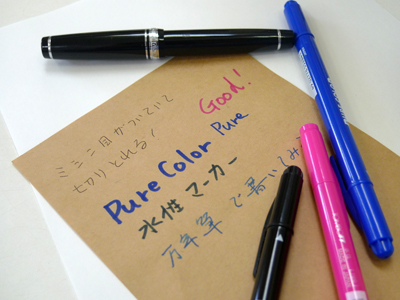 ミシン目がついていて
切りとれる!
Good!
Pure Color Pure
水性マーカー
万年筆で書いてみ